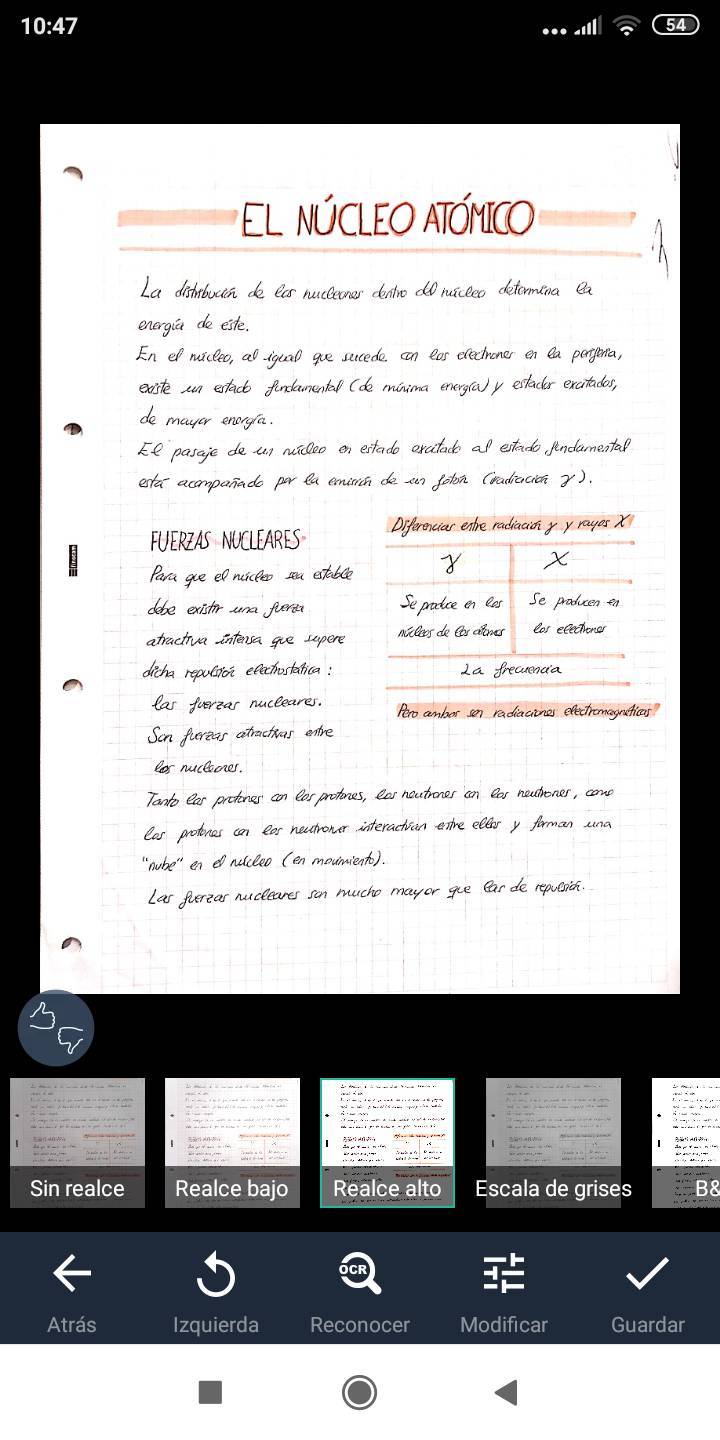 10:47
54
EL NÚCLEO ATÓMICO
La distribución de los nucleones dentro del núcleo determina la
energía de este.
En el núcleo, al igual que sucede con los electrones en la periferia,
existe un estado fundamental (de mínima energía) y estados excitados,
de mayor energía.
El pasaje de un núcleo en estado excitado al estado fundamental
está acompañado por la emisión de un fotón (radiación γ).
FUERZAS NUCLEARES
Para que el núcleo sea estable
debe existir una fuerza
atractiva intensa que supere
dicha repulsión electrostática:
las fuerzas nucleares.
Son fuerzas atractivas entre
los nucleones.
Diferencias entre radiación γ y rayos X
γ X
Se produce en los
núcleos de los átomos
Se producen en
los electrones
La frecuencia
Pero ambos son radiaciones electromagnéticas
Tanto los protones con los protones, los neutrones con los neutrones, como
los protones con los neutrones interactúan entre ellos y forman una
"nube" en el núcleo (en movimiento).
Las fuerzas nucleares son mucho mayor que las de repulsión.
Sin realce
Realce bajo
Realce alto
Escala de grises
B&
OCR
Atrás
Izquierda
Reconocer
Modificar
Guardar